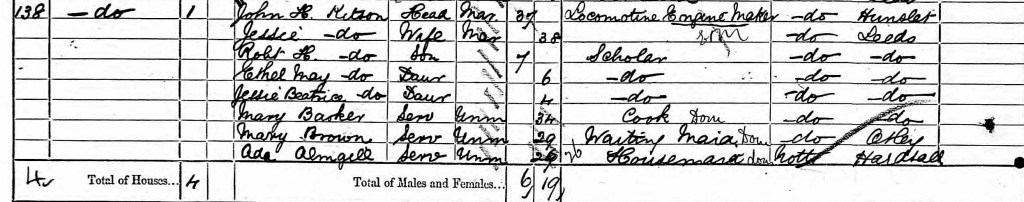 138 -do 1 John H. Kitson Head Mar 37 Locomotive Engine Maker -do Hunslet
Jessie -do Wife Mar 38 -do Leeds
Robt H. -do Son 7 Scholar -do -do
Ethel May -do Daur 6 -do -do -do
Jessie Beatrice -do Daur 4 -do -do -do
Mary Barker Serv Unm 34 Cook Dom -do -do
Mary Brown Serv Unm 29 Waiting Maid Dom -do Otley
Ada Serv Unm 26 Housemaid dom Notts
4 Total of Houses... 4 Total of Males and Females... 6 19